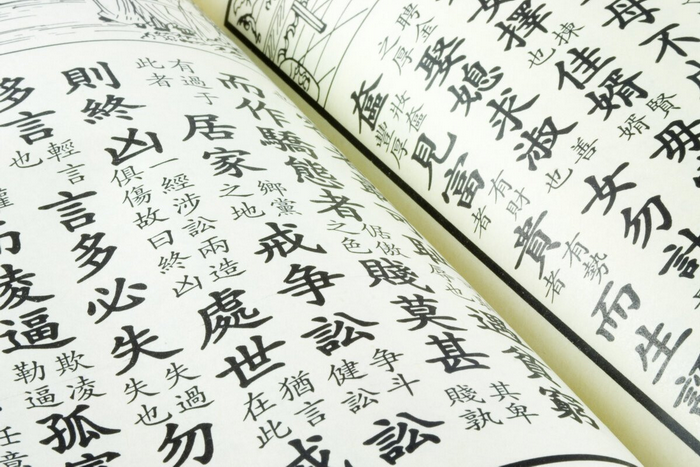 母不
女擇揀也佳婿賢婿毋
娶媳求淑善也女勿計
聘金之厚奩妝奩豐厚見富有財者貴有勢者而生諂
貧窮
而作驕態者倨傲之色賤莫甚其卑賤孰
有過于此者居家鄉黨之地戒爭訟爭斗健訟訟
則終凶一經涉訟兩造俱傷故曰終凶處世猶言在此戒
多言輕言也言多必失失過失也勿
而凌逼欺凌勒逼孤寡
任意